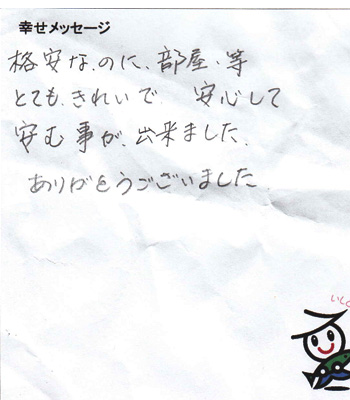 幸せメッセージ
格安な、のに、部屋・等
とても、きれいで、安心して
安む事が、出来ました、
ありがとうございました
いしく